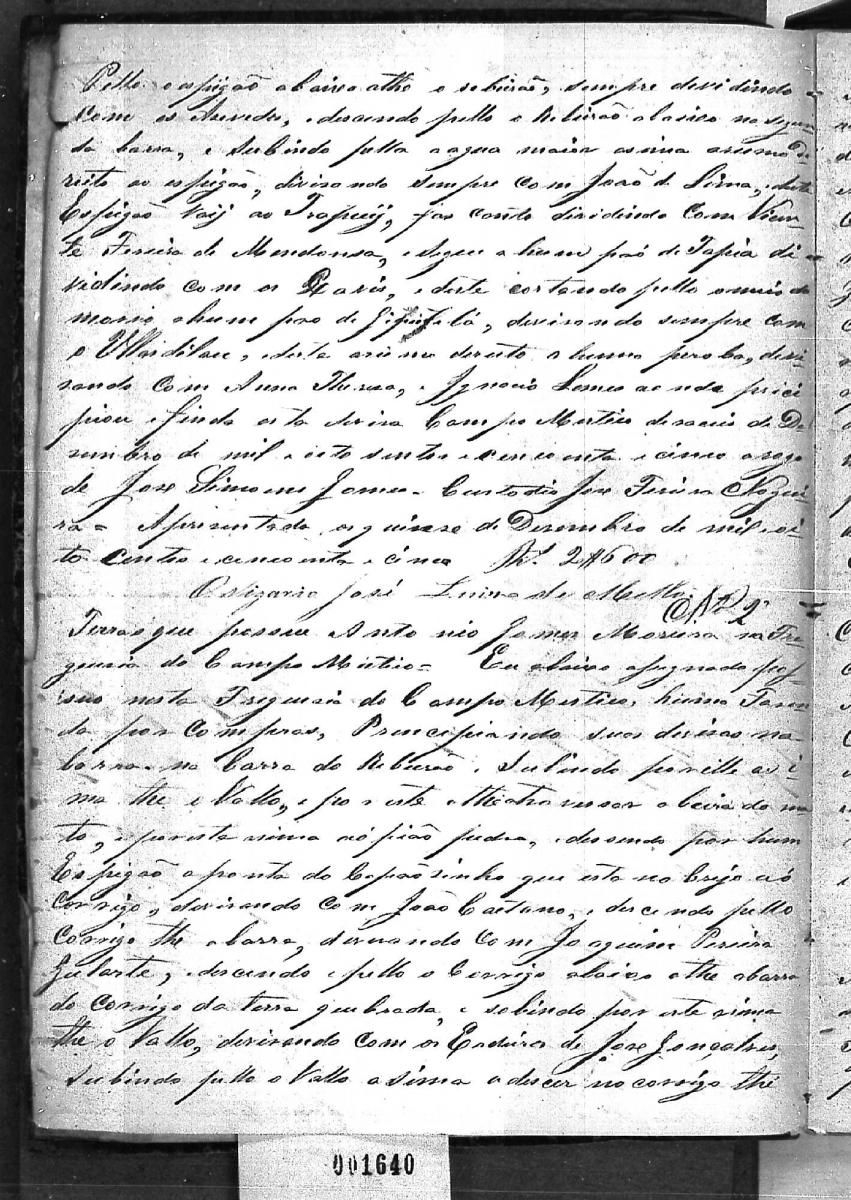 Pello espigão abaixo athe o rebeirão, sempre devidindo
com os Azevedos, e descendo pello o Reberão abaixo na segun-
da barra, e Subindo pella a agua maior asima arumo di
reito ao espigão, divisando sempre com João de Lima, e deste
Espigão vaij ao fas canto dividindo com Vicen-
te Fereira de Mendonsa, e segue a hum páo de Tapia di
vidindo com os e deste cortando pello o meio do
a hum páo de devisando sempre com
o e desta arumo dereito a huma peroba, devi
zando com Anna Thereza, e Ignacio Lemes aonde prici
piou e finda esta deviza Campo Mistico de
zembro de mil e oito sentos e cencoenta e cinco a rogo
de Joze Simoens Gomes = Custodio Joze Fereira Nogue-
ra = Aprisentada os quinse de Dezembro de mil e oi-
to centos e cencoenta e cinco Rs. 2#600
O Vigario José de Mello
Nº 2º
Terras que possue Antonio Gomes Moreira na Fre
guesia do Campo Mistico = Eu abaixo asignado pos-
suo nesta Freguesia do Campo Mistico, huma Fazen
da por compras, Principiando suas devisas na
barra na barra do Reberão e Subindo por elle asi-
ma the o Vallo, e por este athe atravessar a beira do ma-
to, e por este asima ao pião pedra, e dessendo por hum
Espigão a ponta do Capãosinho que esta no brejo ao
Corrigo, devisando com João Caetano, e descendo pello
Corrigo the a barra, devisando com Joaquim Pereira
Gularte, e descendo e pello o Corrigo abaixo athe abarra
do corrigo da terra quebrada, e sobindo por este sima
the o Vallo, devisando com os Erdeiros de Joze Gonçalves,
Subindo pello o Vallo asima a descer no corrigo the
001640